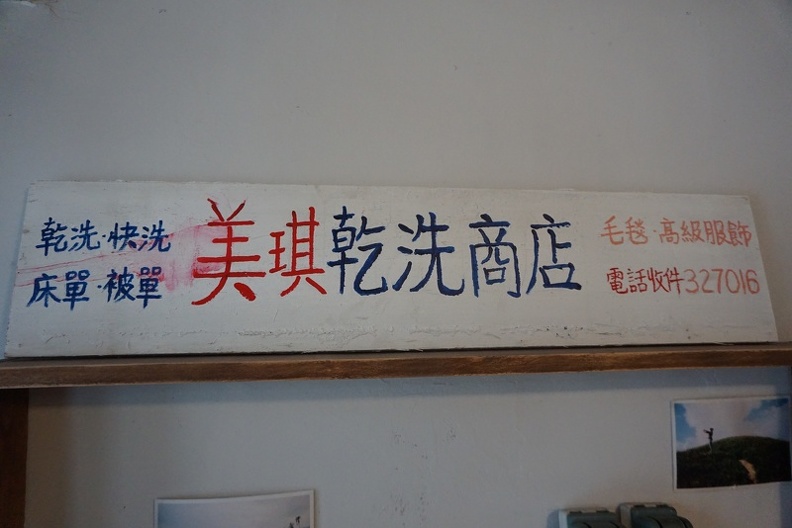 乾洗·快洗
床單·被單
美琪乾洗商店
毛毯·高級服飾
電話收件327016